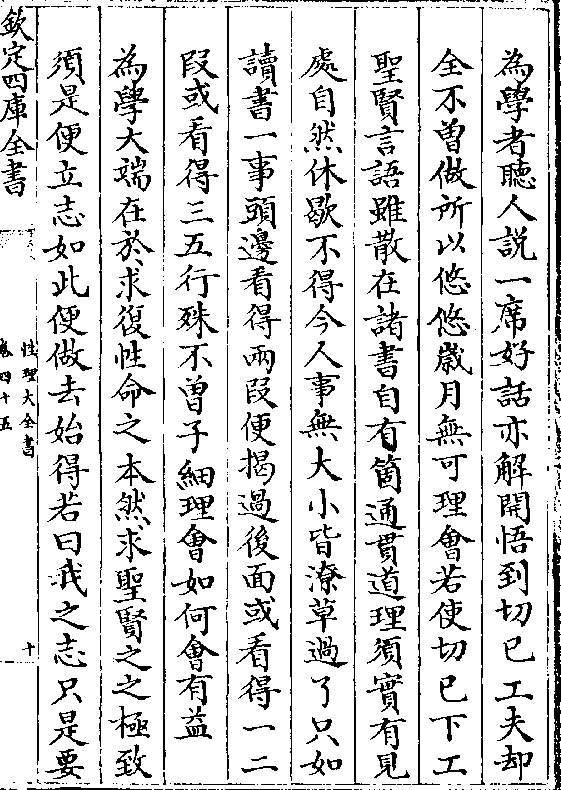 為學者聽人説一席好話亦解開悟到切已工夫却
全不曽做所以悠悠歲月無可理會若使切已下工
聖賢言語雖散在諸書自有箇通貫道理須實有見
處自然休歇不得今人事無大小皆潦草過了只如
讀書一事頭邊看得兩段便揭過後面或看得一二
段或看得三五行殊不曽子細理會如何會有益
為學大端在於求復性命之本然求聖賢之之極致
須是便立志如此便做去始得若曰我之志只是要
欽定四庫全書
性理大全書
卷四十五
十